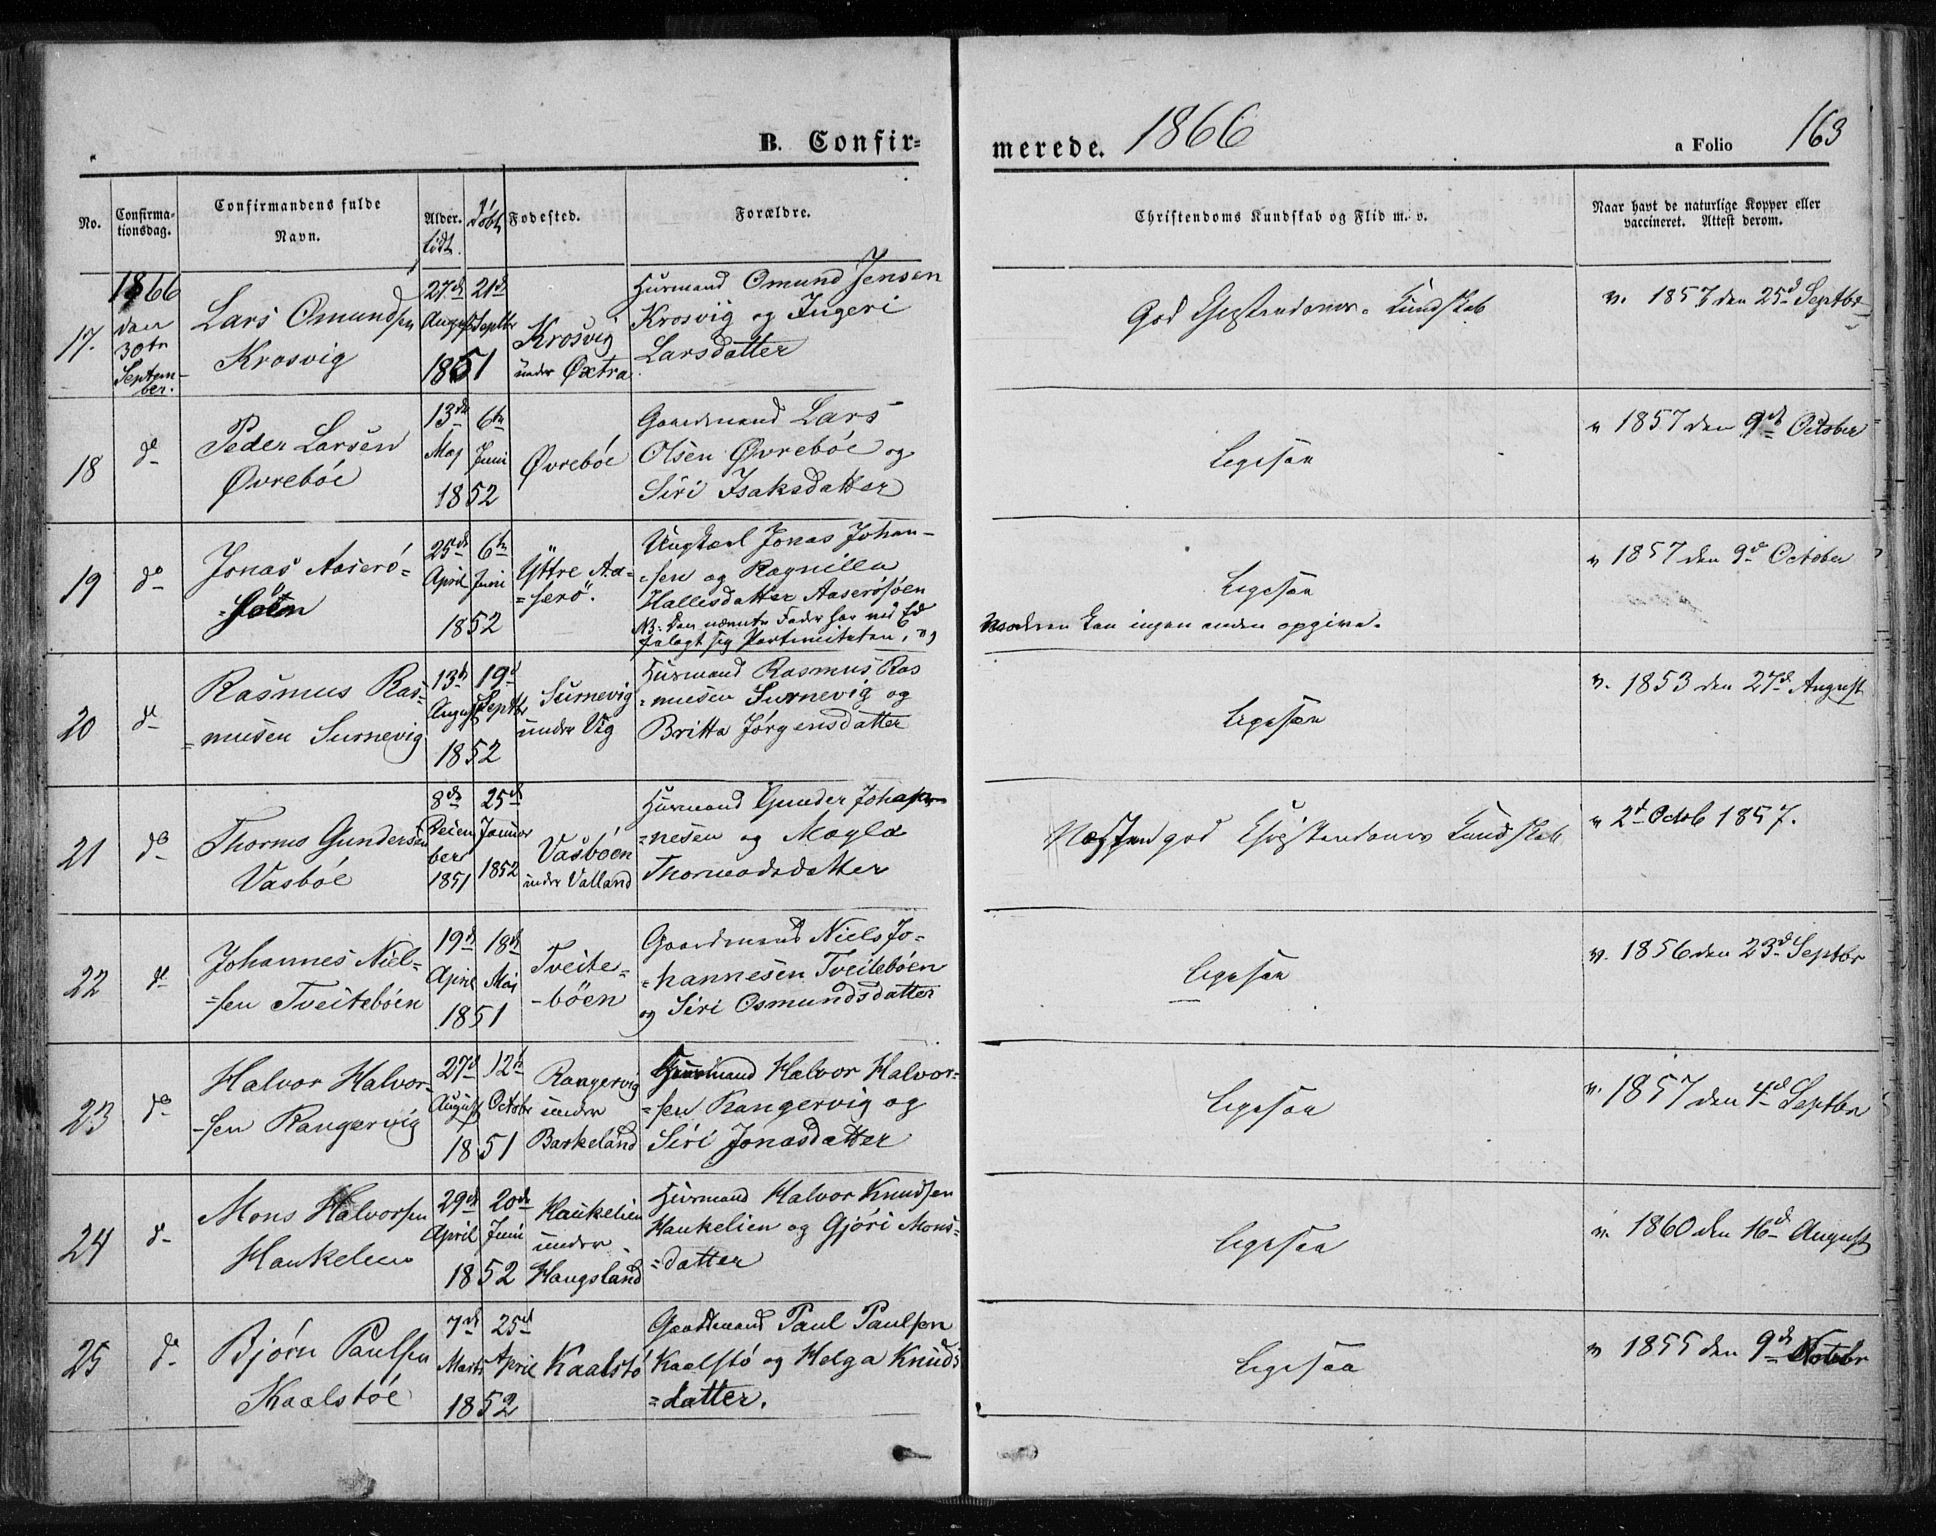 B. Confir-
merede. 1866
a Folio 163
No.
Confirma-
tionsdag.
Confirmandens fulde
Navn.
Alder.
født.
døbt
Fødested.
Forældre.
Christendoms Kundskab og Flid m. v.
Naar havt de naturlige Kopper eller
vaccineret. Attest derom.
17.
1866
den
30te
Septem-
ber.
Lars Omundsen
Krosvig
27de 21de
August Septbr
1851
Krosvig
under Øxtra
Husmand Omund Jensen
Krosvig og Ingeri
Larsdatter
God Christendoms Kundskab
v. 1857 den 25de Septbr
18
do
Peder Larsen
Øvrebøe
13de 6te
Maj Juni
1852
Øvrebøe
Gaardmand Lars
Olsen Øvrebøe og
Siri Isaksdatter
Ligesaa
v 1857 den 9de October
19
do
Jonas Aaserø-
25de 6te
April Juni
1852
Yttre Aa-
=serø.
Ungkarl Jonas Johan-
=sen og Ragnilla
Hallesdatter Aaserøsøen
NB: Den nævnte Fader har ved Ed
fralagt sig Paterniteten, og
Ligesaa
Moderen kan ingen anden opgive.
v 1857 den 9de October
20
do
Rasmus Ras-
=musen Surnevig
13de 19de
August Septbr
1852
Surnevig
under Vig
Husmand Rasmus Ras
=musen Surnevig og
Britta Jørgensdatter
Ligesaa
v. 1853 den 27de August
21
do
Thormo Gundersen
Vasbøe
8de 25de
Decem Januar
ber
1851 1852
Vasbøen
under Valland
Husmand Gunder Johan
=nesen og Magla
Thormodsdatter
Næsten god Christendoms Kundskab
v 2de Octob 1857.
22
do
Johannes Niel-
=sen Tveitebøen
19de 18de
April Mai
1851
Tveite-
-bøen
Gaardmand Niels Jo-
=hannesen Tveitebøen
og Siri Osmundsdatter
Ligesaa
v. 1856 den 23de Septbr
23
do
Halvor Halvor-
-sen Rangervig
27de 12te
August Octobr
1851
Rangervig
under
Barkeland
Husmand Halvor Halvor=
=sen Rangervig og
Siri Jonasdatter
Ligesaa
v. 1857 den 4de Septbr
24
do
Mons Halvorsen
Haukelien
29de 20de
April Juni
1852
Haukelien
under
Haugsland
Husmand Halvor Knudsen
Haukelien og Gjøri Mons-
=datter
Ligesaa
v. 1860 den 16de August
25
do
Bjørn Paulsen
Kaalstøe
7de 25de
Marts April
1852
Kaalstø
Gaardmand Paul Paulsen
Kaalstø og Helga Knuds
=datter.
Ligesaa
v 1855 den 9de